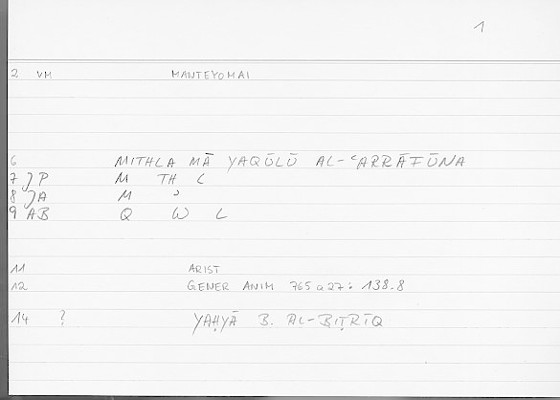 1
2 VM MANTEYOMAI
6 MITHLA MĀ YAQŪLŪ AL-ʿARRĀFŪNA
7 JP M TH L
8 JA M ʾ
9 AB Q W L
11 ARIST
12 GENER ANIM 765 a 27 : 138.8
14 ? YAḤYĀ B. AL-BIṬRĪQ